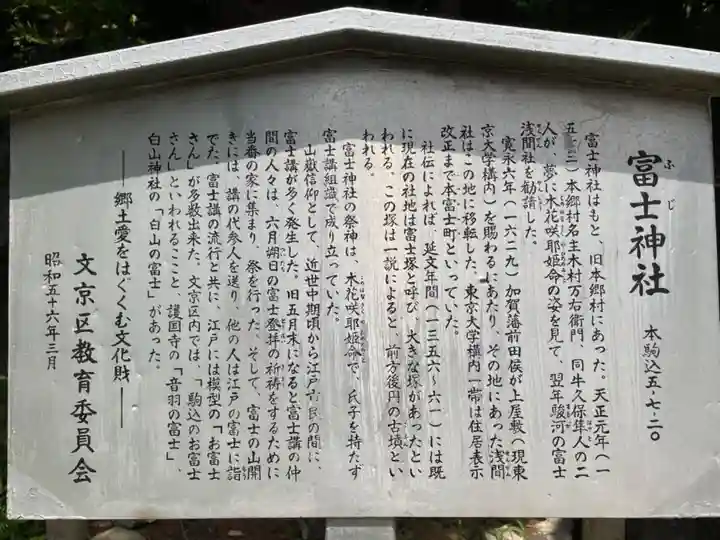 富士神社
ふじ
本駒込五-七-二〇
富士神社はもと、旧本郷村にあった。天正元年（一
五七三）本郷村名主木村万右衛門、同牛久保隼人の二
人が、夢に木花咲耶姫命の姿を見て、翌年駿河の富士
浅間社を勧請した。
寛永六年（一六二九）加賀藩前田侯が上屋敷（現東
京大学構内）を賜わるにあたり、その地にあった浅間
社はこの地に移転した。東京大学構内一帯は住居表示
改正まで本富士町といっていた。
社伝によれば、延文年間（一三五六〜六一）には既
に現在の社地は富士塚と呼び、大きな塚があったとい
われる。この塚は一説によると、前方後円の古墳とい
われる。
富士神社の祭神は、木花咲耶姫命で、氏子を持たず
富士講組織で成り立っていた。
山嶽信仰として、近世中期頃から江戸市民の間に、
富士講が多く発生した。旧五月末になると富士講の仲
間の人々は、六月朔日の富士登拝の祈祷をするために
当番の家に集まり、祭を行った。そして、富士の山開
きには、講の代参人を送り、他の人は江戸の富士に詣
でた。富士講の流行と共に、江戸には模型の「お富士
さん」が多数出来た。文京区内では、「駒込のお富士
さん」といわれるここと、護国寺の「音羽の富士」、
白山神社の「白山の富士」があった。
――郷土愛をはぐくむ文化財――
文京区教育委員会
昭和五十六年三月